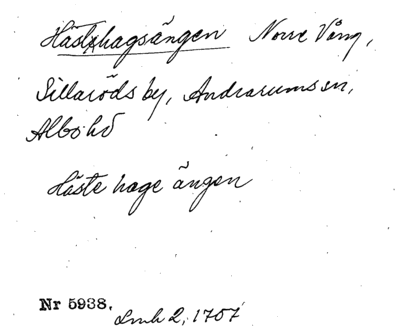 Hästhagsängen Norre Vång,
Sillaröds by, Andrarums sn,
Albo hd
Häste hage ängen
Nr 5938.
Lmh 2, 1707